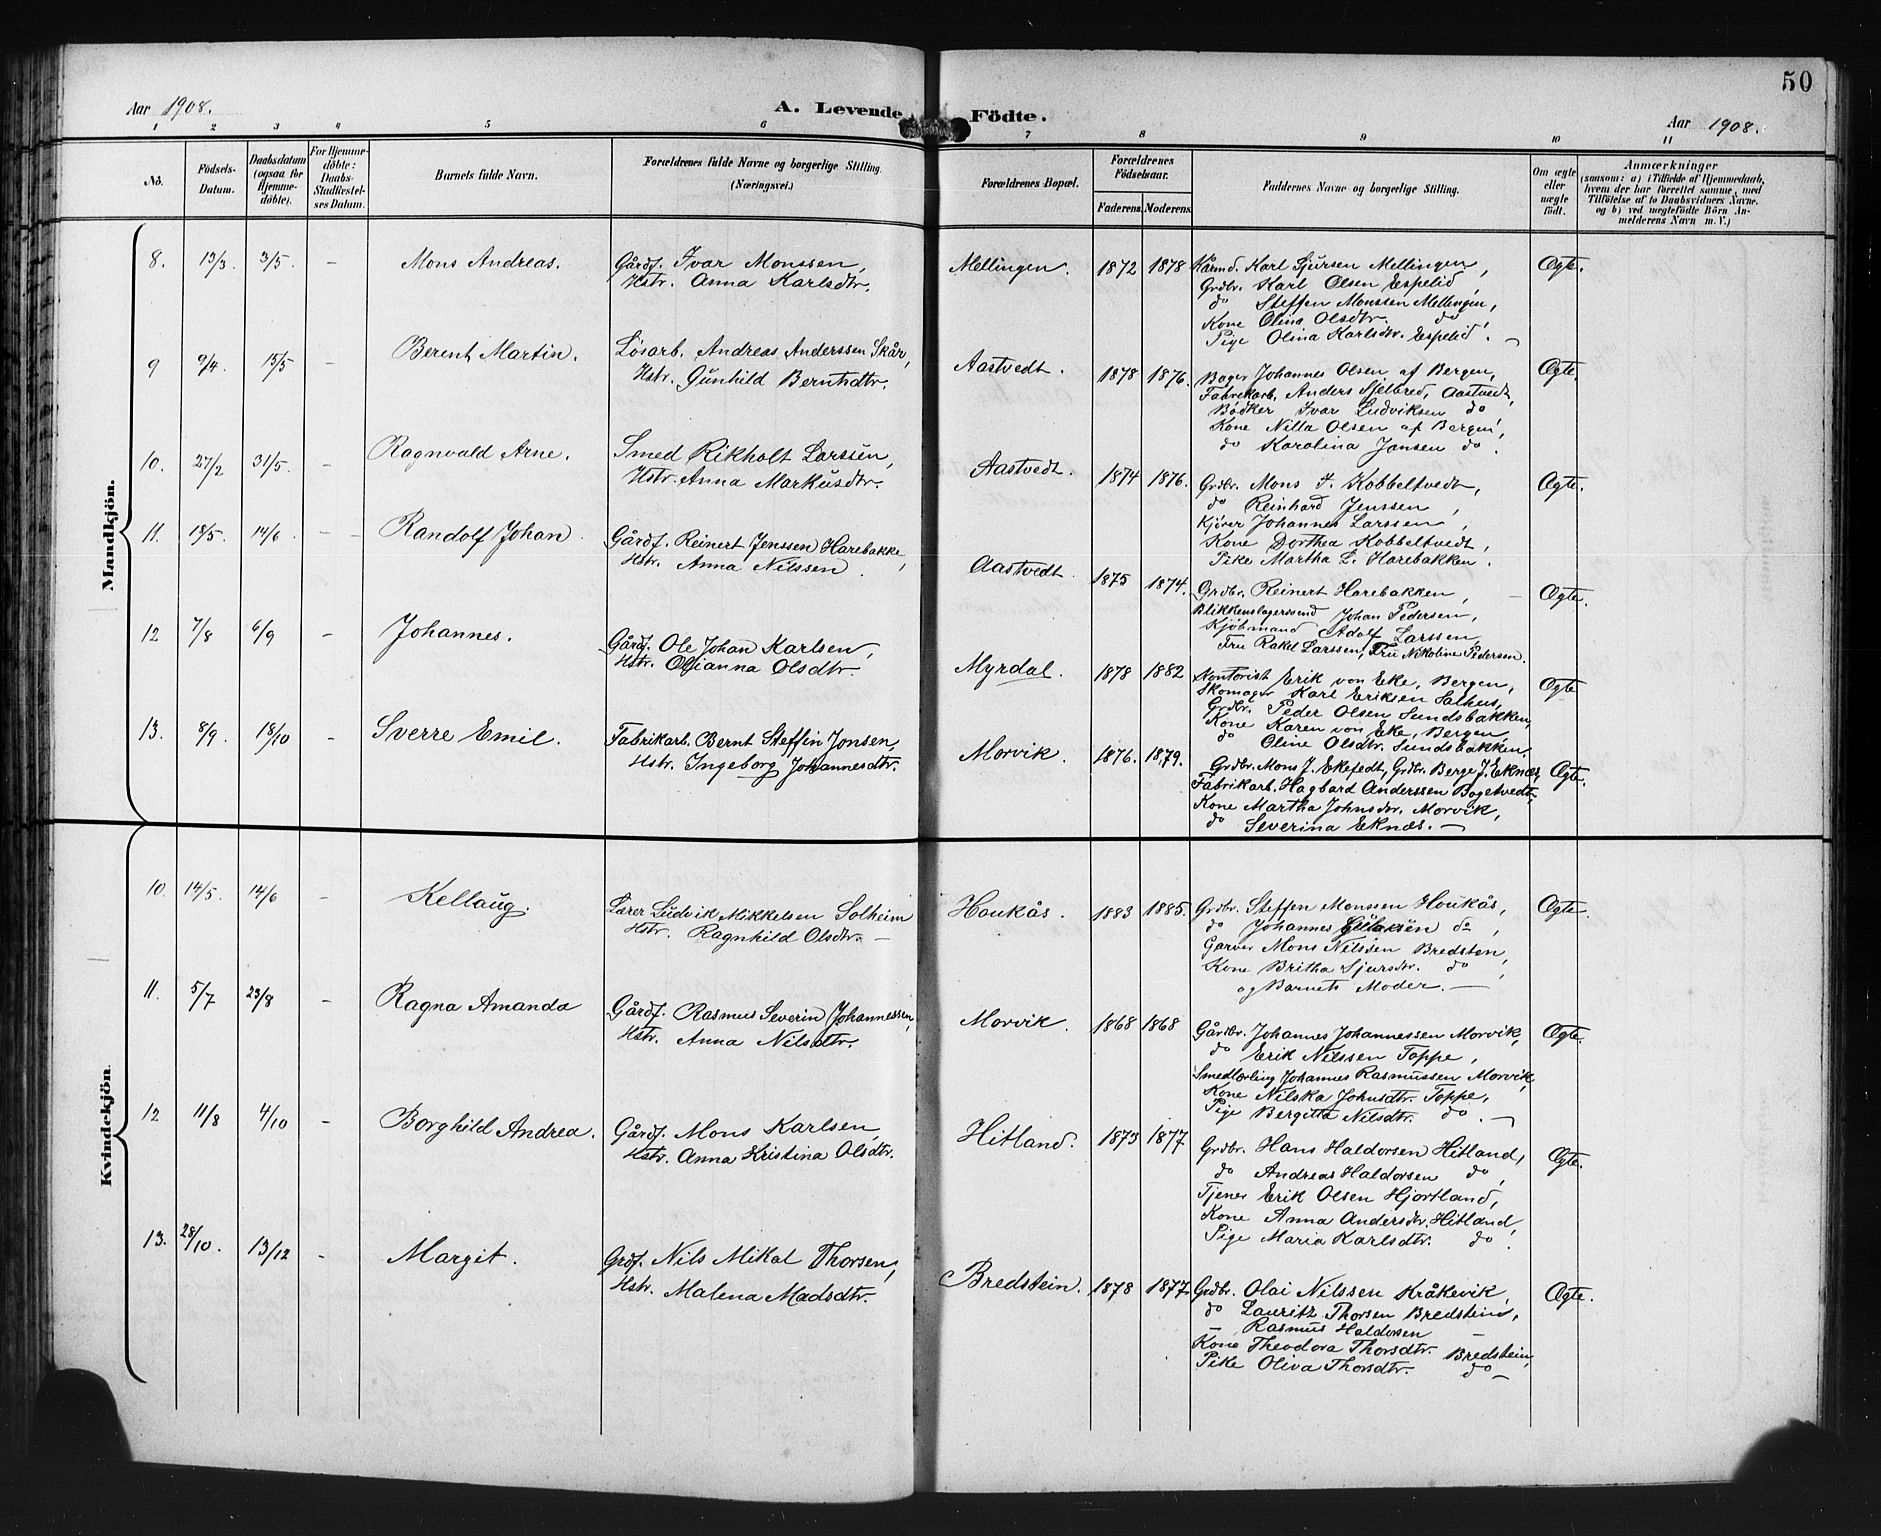 50
Aar 1908.
A. Levende Födte.
Aar 1908.
1 2 3 4 5 6 7 8 9 10 11
No.
Födsels-Datum.
Daabsdatum (ogsaa for Hjemmedöbte).
For Hjemmedöbte: Daabs-Stadfæstelses Datum.
Barnets fulde Navn.
Forældrenes fulde Navne og borgerlige Stilling.
(Næringsvei.)
Forældrenes Bopæl.
Forældrenes Födselsaar.
Faderens. Moderens.
Faddernes Navne og borgerlige Stilling.
Om ægte eller uægte födt.
Anmærkninger
(saasom: a) i Tilfælde af Hjemmedaab,
hvem der har forrettet samme, med
Tilföielse af to Daabsvidners Navne.
og b) ved uægtefödte Börn An-
melderens Navn m. V.)
Mandkjön.
8. 13/3. 3/5. - Mons Andreas. Gårdf. Ivar Monssen,
Hstr. Anna Karlsdtr.
Mellingen. 1872 1878 Kårmd. Karl Sjursen Mellingen, Ægte.
Grdbr. Karl Olsen Espelid,
do Steffen Monssen Mellingen,
Kone Olina Olsdtr. do,
Pige Olina Karlsdtr. Espelid. -
9 9/4. 15/5 - Berent Martin. Løsarb. Andreas Anderssen Skår,
Hstr. Gunhild Berntsdtr.
Aastvedt. 1878 1876. Bager Johannes Olsen af Bergen, Ægte.
Fabrikarb. Anders Hjelbred, Aastvedt,
Bødker Ivar Ludviksen do
Kone Nilla Olsen af Bergen,
do Karolina Jansen do.
10. 27/2 31/5. - Ragnvald Arne. Smed Rikholt Larssen,
Hstr. Anna Markusdtr.
Aastvedt. 1874 1876. Grdbr. Mons J. Kobbeltvedt, Ægte.
do Reinhard Jenssen,
Kjører Johannes Larssen,
Kone Dorthea Kobbeltvedt,
Pike Martha L. Harebakken.
11. 18/5. 14/6. - Randolf Johan. Gårdf. Reinert Jenssen Harebakke,
Hstr. Anna Nilssen.
Aastvedt. 1875 1874. Grdbr. Reinert Harebakken, - Ægte.
Blikkenslagersvend Johan Pedersen,
Kjøbmand Adolf Larssen,
Fru Rakel Larssen, Fru Nikoline Pedersen.
12 7/8 6/9 - Johannes. Gårdf. Ole Johan Karlsen,
Hstr. Olianna Olsdtr.
Myrdal. 1878 1882 Kontorist Erik von Eke, Bergen, Ægte
Skomager Karl Eriksen Salhus,
Grdbr. Peder Olsen Sundsbakken,
Kone Karen von Eke, Bergen,
do Oline Olsdtr. Sundsbakken,
13. 8/9. 18/10 - Sverre Emil. Fabrikarb. Bernt Steffin Jonsen,
Hstr. Ingeborg Johannesdtr.
Morvik. 1876. 1879. Grdbr. Mons J. Ekefedt, Grdbr. Berge J. Eknæs, Ægte.
Fabrikarb. Hagbard Anderssen Bogetvedt,
Kone Martha Johnsdtr. Morvik,
do Severina Eknæs. -
Kvindekjön.
10. 14/5. 14/6 - Kellaug. Lærer Ludvik Mikkelsen Solheim
Hstr. Ragnhild Olsdtr. -
Houkås. 1883 1885. Grdbr. Steffen Monssen Houkås, Ægte.
do Johannes do,
Garver Mons Nilssen Bredsten,
Kone Britha Sjursdtr. do,
og Barnets Moder. -
11. 5/7 23/8 - Ragna Amanda Gårdf. Rasmus Severin Johannessen,
Hstr. Anna Nilsdtr.
Morvik. 1868 1868 Gårdbr. Johannes Johannessen Morvik, Ægte.
do Erik Nilssen Toppe,
Smedlærling Johannes Rasmussen Morvik,
Kone Nilska Johnsdtr. Toppe,
Pige Bergitta Nilsdtr. do. -
12 11/8 4/10 - Borghild Andrea. Gårdf. Mons Karlsen,
Hstr. Anna Kristina Olsdtr.
Hitland. 1873 1877 Grdbr. Hans Haldorsen Hitland, Ægte.
do Andreas Haldorsen do,
Tjener Erik Olsen Hjortland,
Kone Anna Andersdtr. Hitland,
Pige Maria Karlsdtr. do.
13. 28/10. 13/12 - Margit. Grdf. Nils Mikal Thorsen,
Hstr. Malena Madsdtr.
Bredstein. 1878 1877. Grdbr. Olai Nilssen Kråkevik, Ægte.
do Lauritz Thorsen Bredstein,
- Rasmus Haldorsen -
Kone Theodora Thorsdtr. Bredstein,
Pike Oliva Thorsdtr. do -